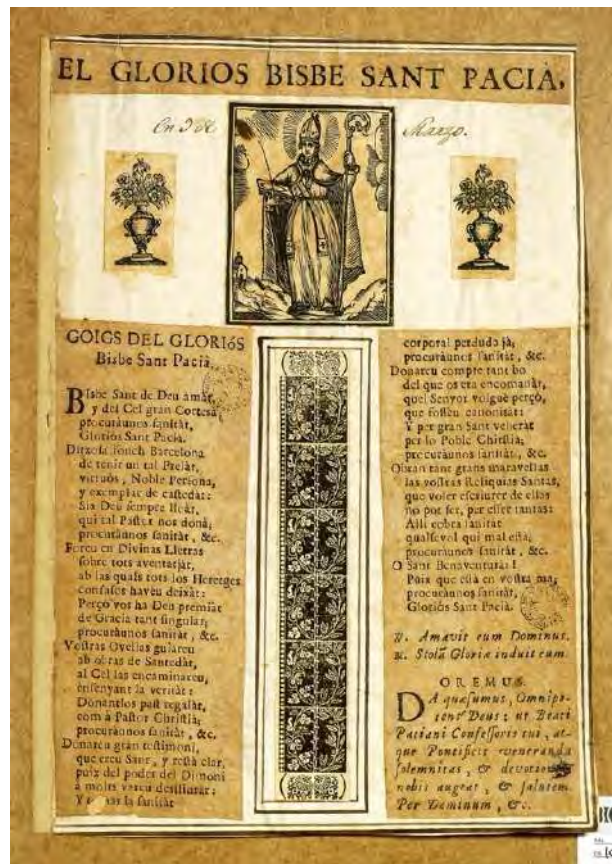 EL GLORIOS BISBE SANT PACIÀ,
En 9 de Marzo.
GOIGS DEL GLORIÓS
Bisbe Sant Pacià.
Bisbe Sant de Deu amàt,
y del Cel gran Cortesà,
procuràunos sanitàt,
Gloriós Sant Pacià.
Ditxosa fonch Barcelona
de tenir un tal Prelàt,
virtuós, Noble Persona,
y exemplar de castedàt:
Sia Deu sempre lloàt,
qui tal Pastor nos donà;
procuràunos sanitàt, &c.
Foreu en Divinas Lletras
sobre tots aventatjàt,
ab las quals tots los Heretges
confusos haveu deixàt:
Perçò vos ha Deu premiàt
de Gracia tant singular;
procuràunos sanitàt, &c.
Vostras Ovellas guiareu
ab obras de Santedàt,
al Cel las encaminareu,
ensenyant la veritàt:
Donantlos past regalàt,
com à Pastor Christià;
procuràunos sanitàt, &c.
Donareu gran testimoni,
que ereu Sant, y està clar,
puix del poder del Dimoni
à molts vareu deslliurar:
Y tornar la sanitàt
corporal perduda jà;
procuràunos sanitàt, &c.
Donareu compte tant bo
del que os era encomanàt,
quel Senyor volguè perçò,
que fosseu canonitzàt:
Y per gran Sant veneràt
per lo Poble Christià;
procuràunos sanitàt, &c.
Obran tant grans maravellas
las vostras Reliquias Santas,
que voler escriurer de ellas
no pot ser, per esser tantas:
Allì cobra sanitàt
qualsevol qui mal està;
procuràunos sanitàt, &c.
O Sant Benaventuràt!
Puix que està en vostra mà;
procuràunos sanitàt,
Gloriós Sant Pacià.
℣. Amavit eum Dominus.
℟. Stolã Gloriæ induit eum.
OREMUS.
DA quæsumus, Omnipo-
tens Deus: ut Beati
Patiani Confessoris tui, at-
que Pontificis veneranda
solemnitas, & devotionem
nobis augeat, & salutem.
Per Dominum, &c.